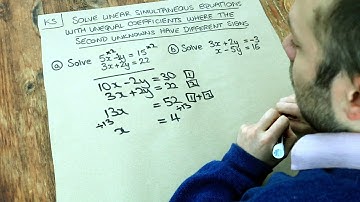 K5
SOLVE LINEAR SIMULTANEOUS EQUATIONS
WITH UNEQUAL COEFFICIENTS WHERE THE
SECOND UNKNOWNS HAVE DIFFERENT SIGNS
(a) Solve 5x - y = 15 ×2
3x + 2y = 22
(b) Solve 3x + 2y = -3
x - 5y = 16
10x - 2y = 30 [1]
3x + 2y = 22 [2]
13x = 52 [1]+[2]
÷13 ÷13
x = 4